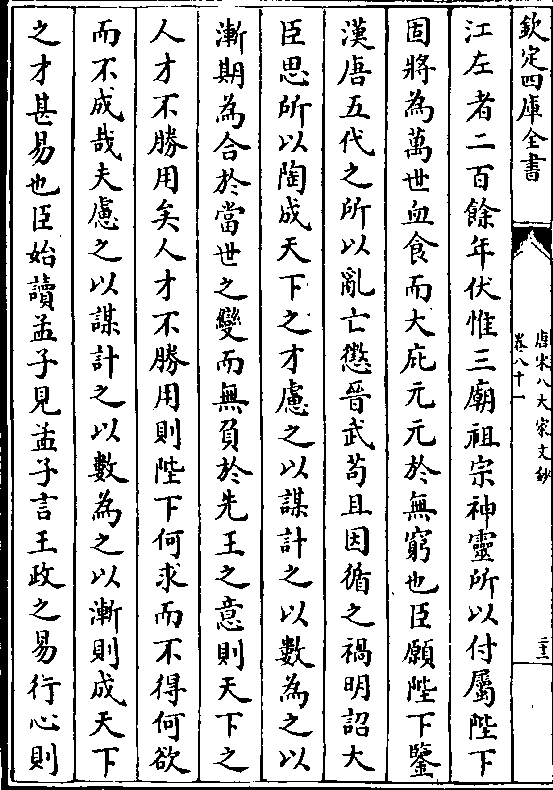 欽定四庫全書
唐宋八大家文鈔
卷八十一
二十二
江左者二百餘年伏惟三廟祖宗神靈所以付屬陛下
固將為萬世血食而大庇元元於無窮也臣願陛下鑒
漢唐五代之所以亂亡懲晉武苟且因循之禍明詔大
臣思所以陶成天下之才慮之以謀計之以數為之以
漸期為合於當世之變而無負於先王之意則天下之
人才不勝用矣人才不勝用則陛下何求而不得何欲
而不成哉夫慮之以謀計之以數為之以漸則成天下
之才甚易也臣始讀孟子見孟子言王政之易行心則